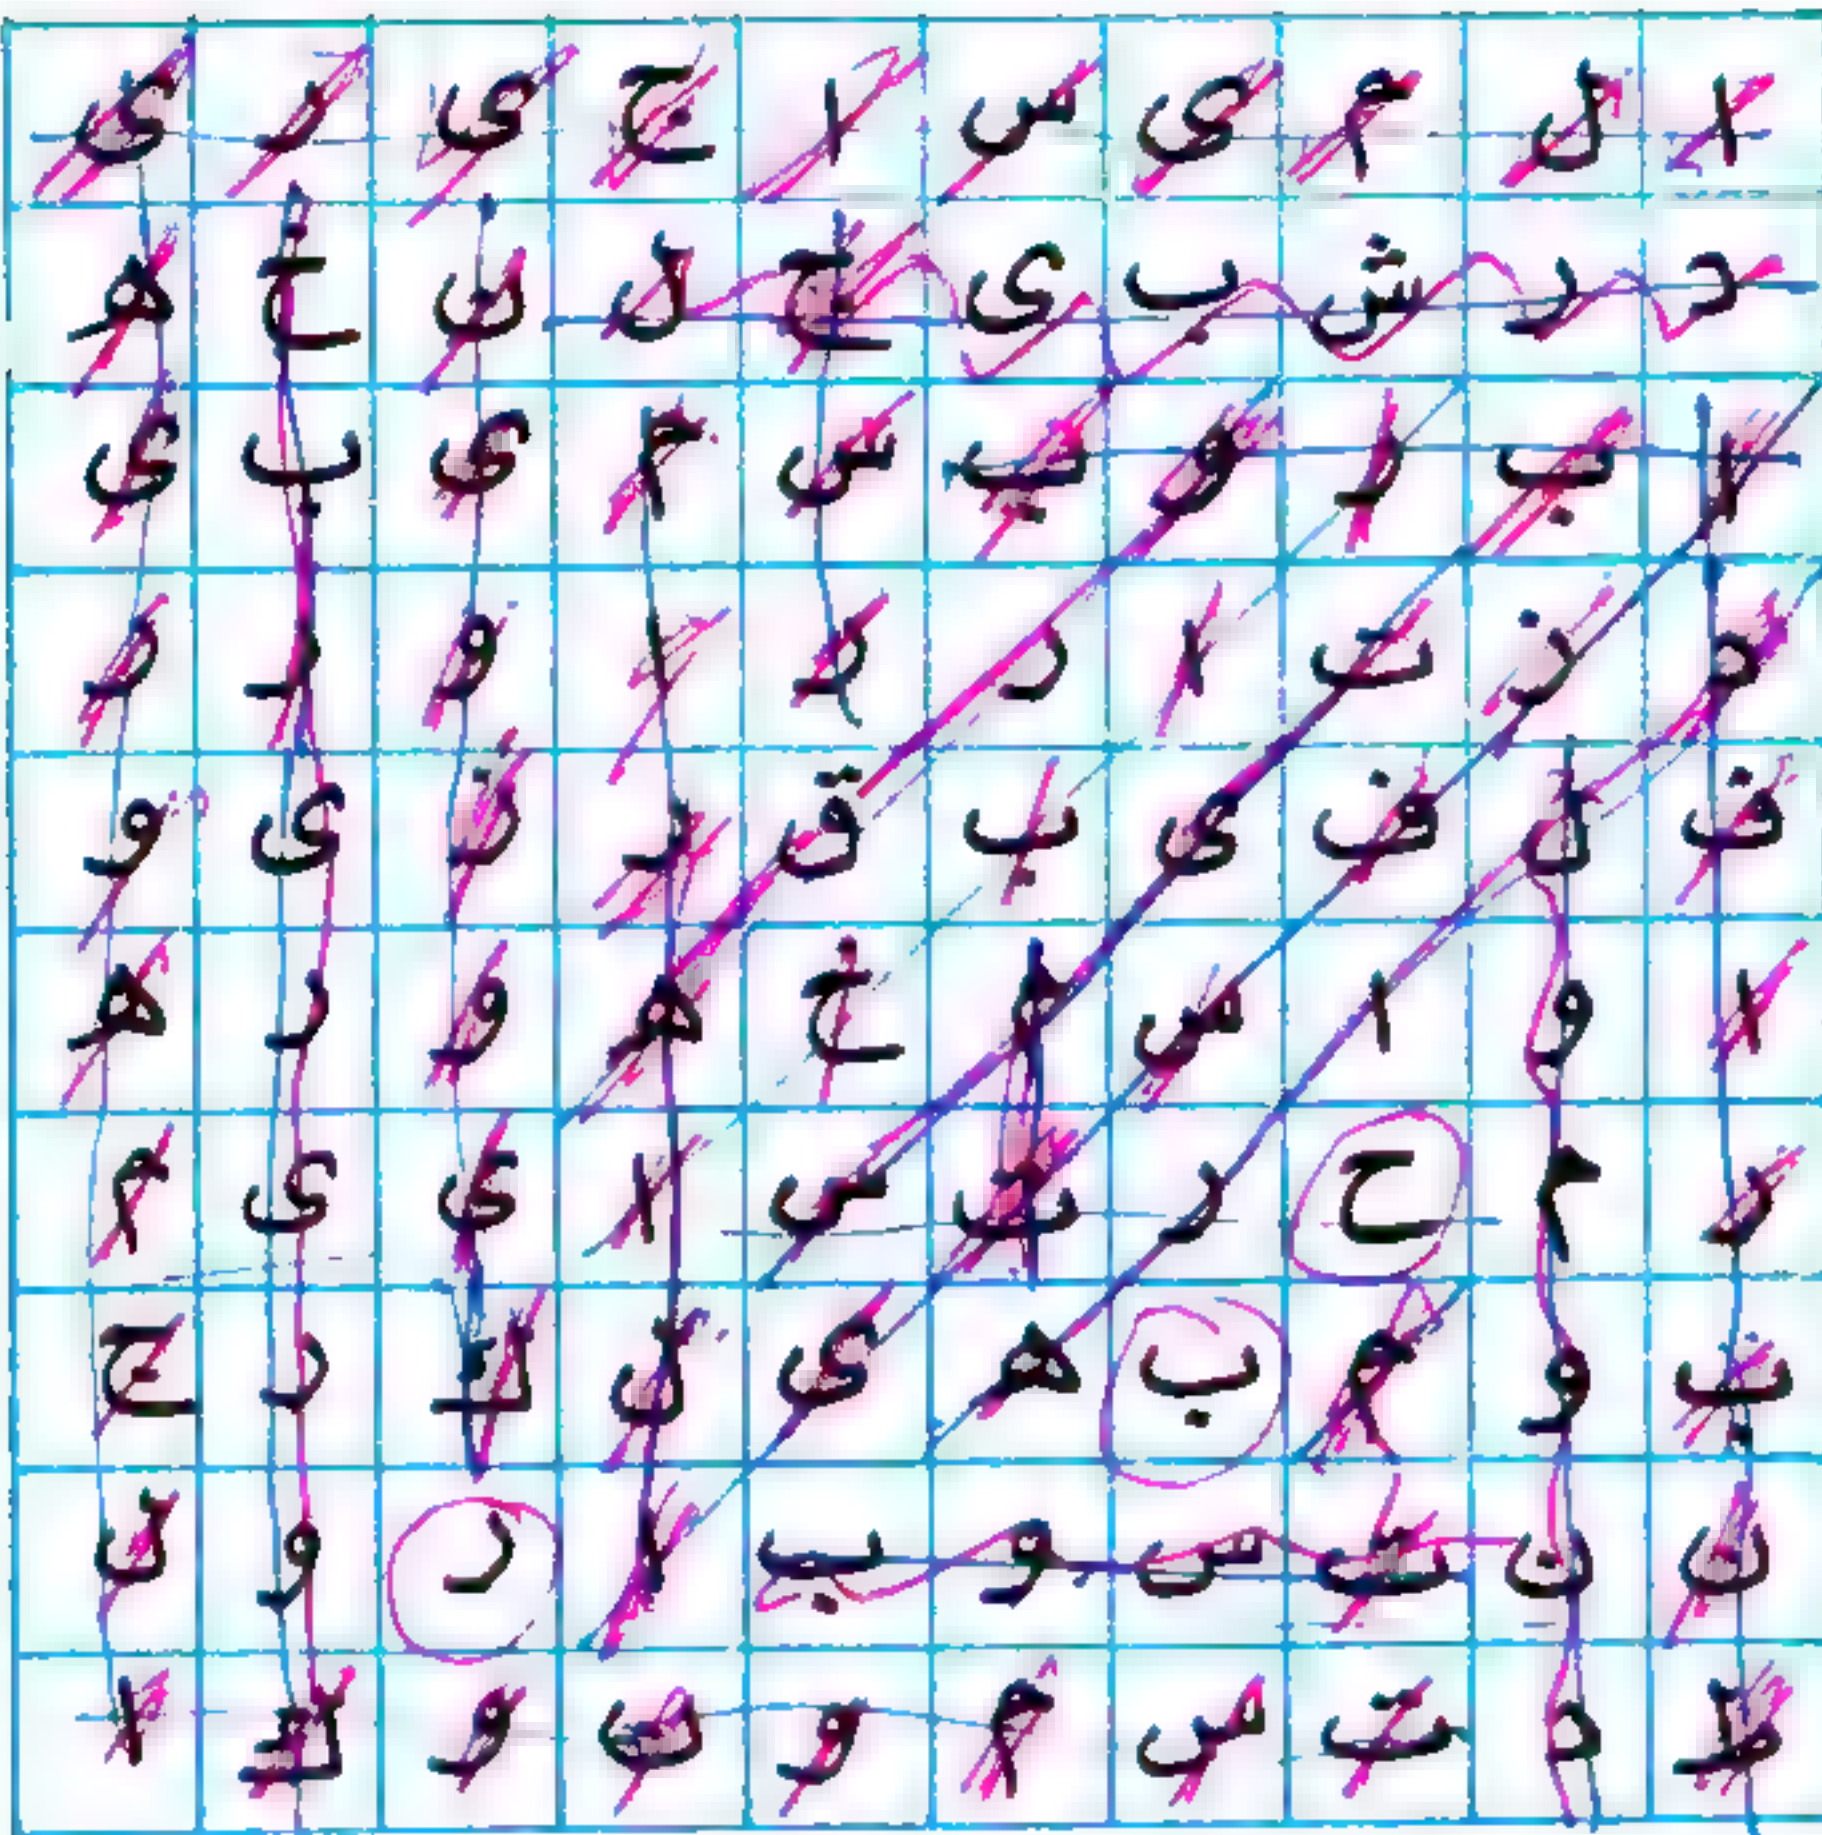 ا ل م ی س ا ج ی ر ی
د ر ش ب ی ج ل ن خ ه
ا ب ر و ب س م ی ب ی
ه ن ت ا ر د ا و ر د
ف ل ف ی ب ق ر ز ی و
ا و ا س م خ ه و ر ه
ر م ح ر ت س ا ی ی م
ب و م ب ه ی ل ک ر ج
ن ن ت س و ب ا ر و ن
ط ه ت س م و ن و ک ا